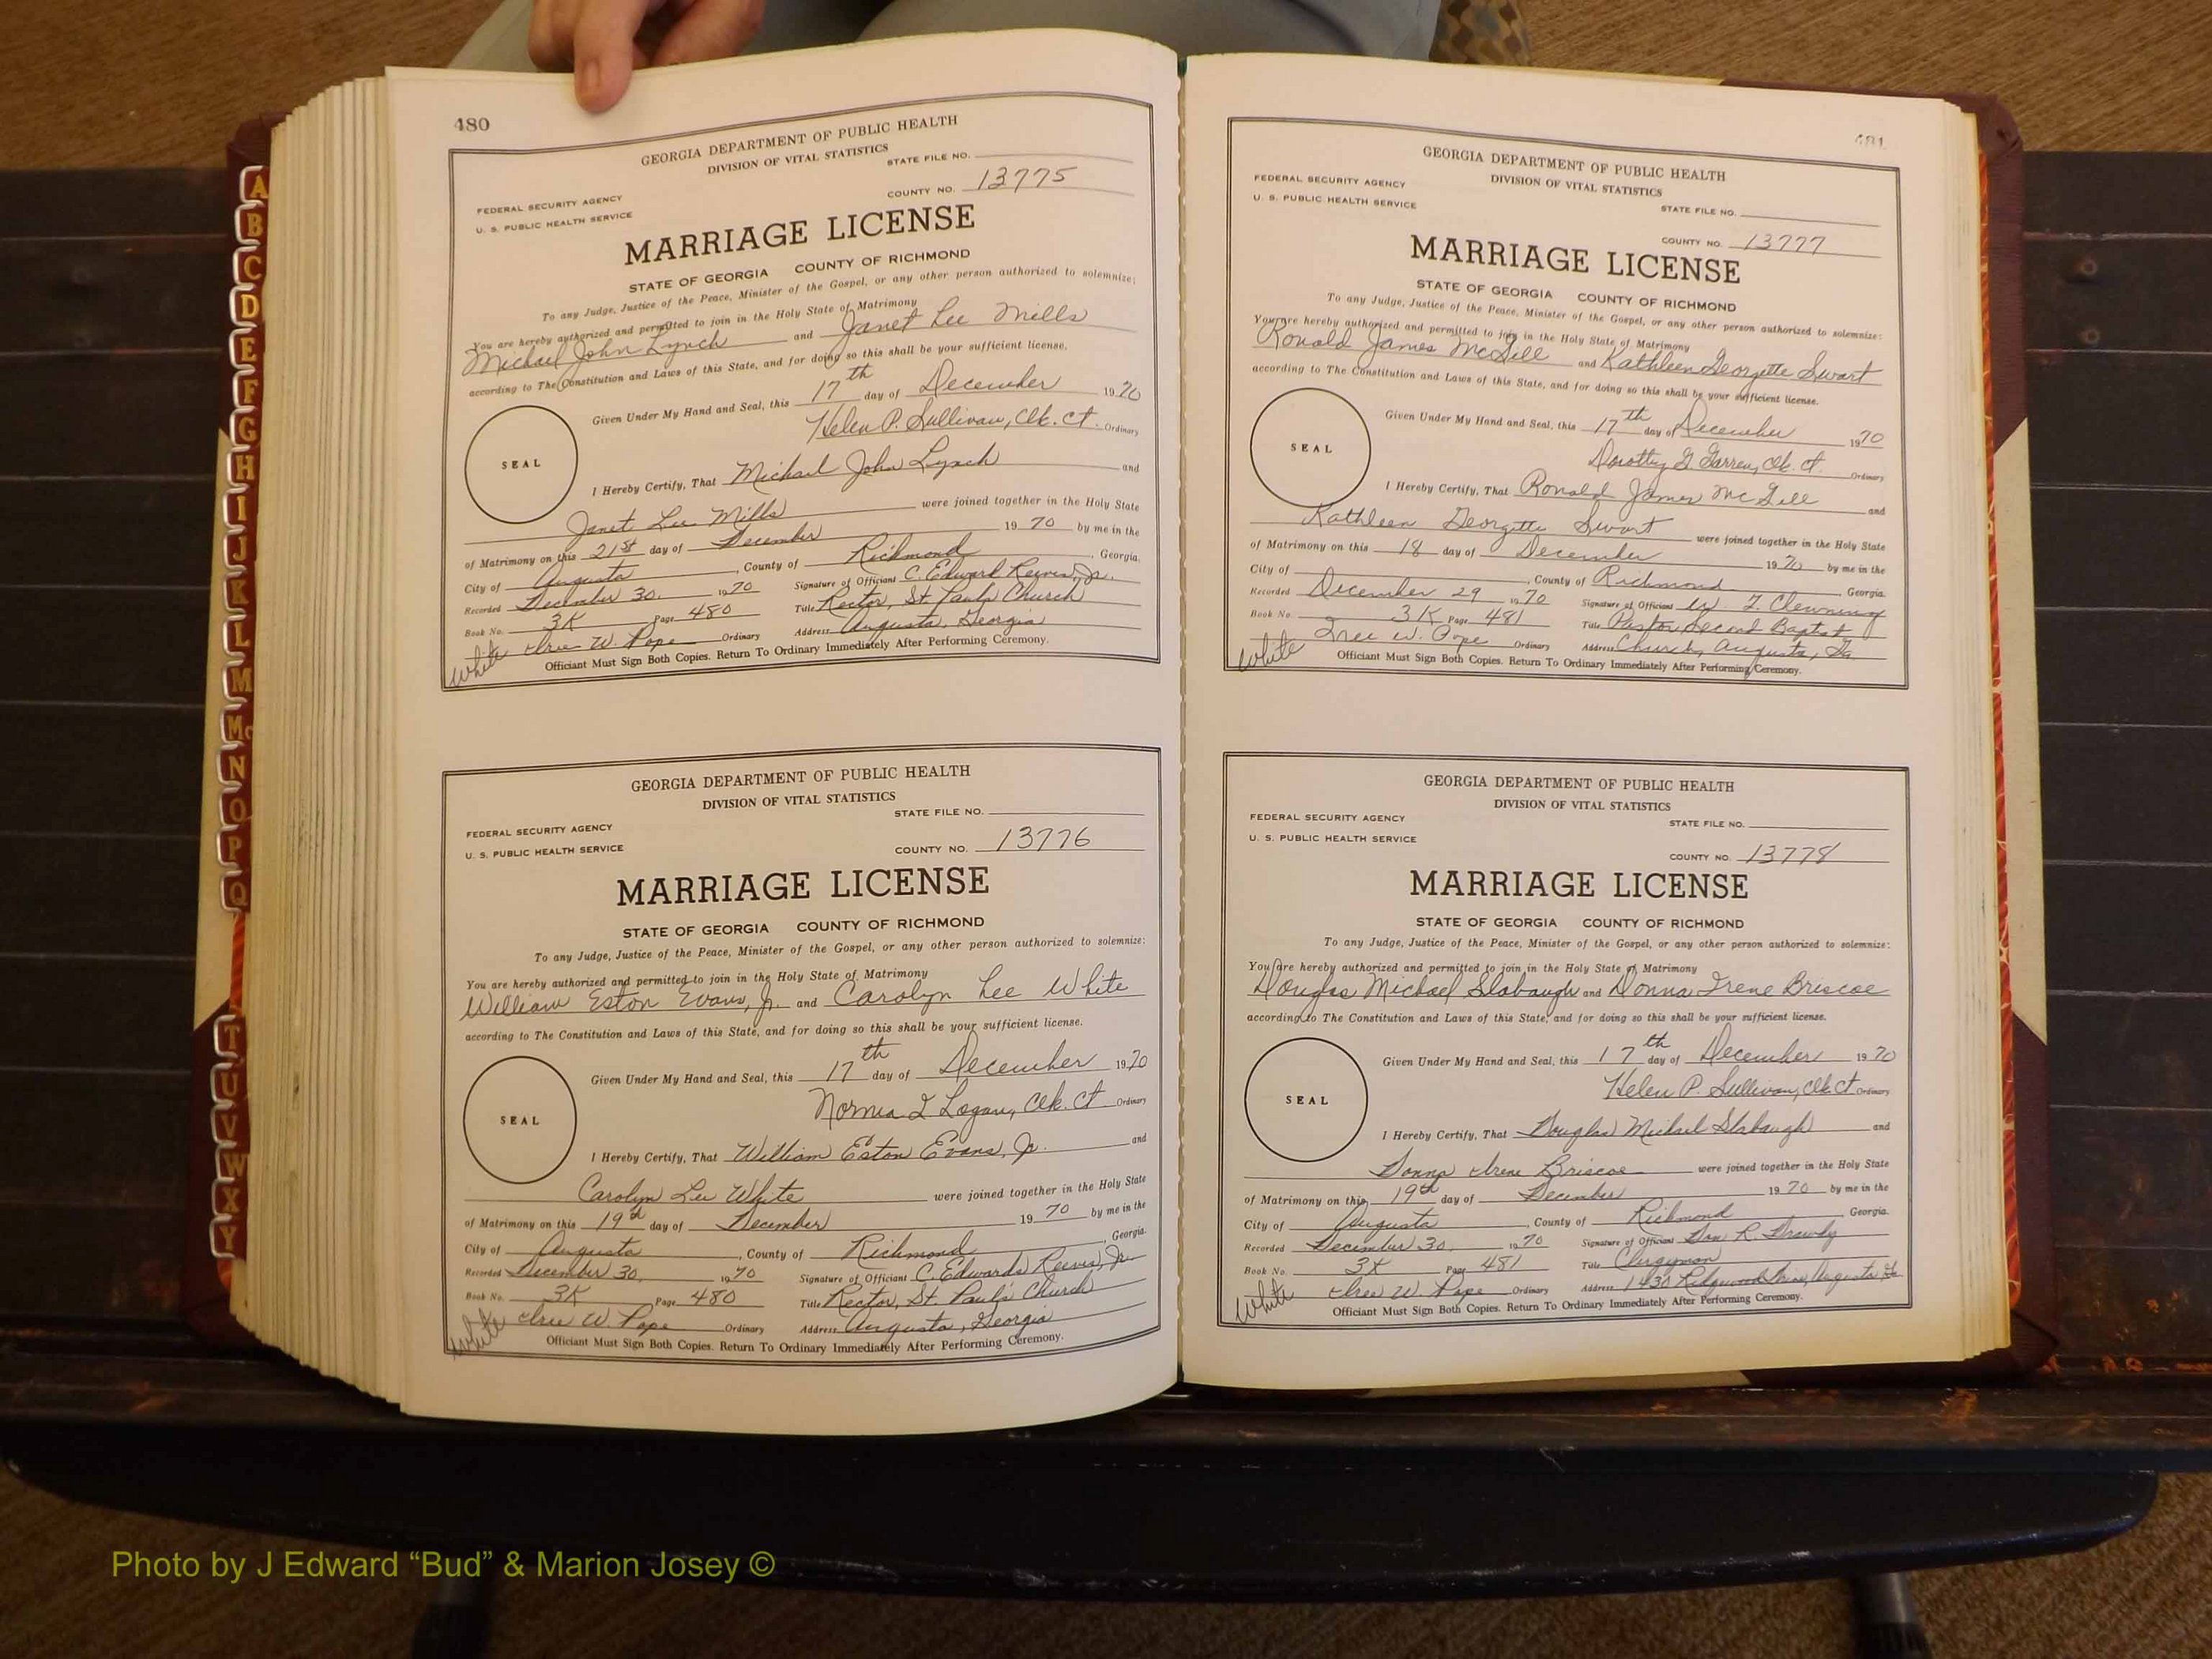 A
B
C
D
E
F
G
H
I
J
K
L
M
Mc
N
O
P
Q
T
U
V
W
X
Y
480
GEORGIA DEPARTMENT OF PUBLIC HEALTH
DIVISION OF VITAL STATISTICS
STATE FILE NO.
FEDERAL SECURITY AGENCY
COUNTY NO. 13775
U. S. PUBLIC HEALTH SERVICE
MARRIAGE LICENSE
STATE OF GEORGIA COUNTY OF RICHMOND
To any Judge, Justice of the Peace, Minister of the Gospel, or any other person authorized to solemnize:
You are hereby authorized and permitted to join in the Holy State of Matrimony
Michael John Lynch and Janet Lee Mills
according to The Constitution and Laws of this State, and for doing so this shall be your sufficient license.
Given Under My Hand and Seal, this 17th day of December 1970
Helen P. Sullivan, Clk. Ct. Ordinary
SEAL
I Hereby Certify, That Michael John Lynch and
Janet Lee Mills were joined together in the Holy State
of Matrimony on this 21st day of December 1970 by me in the
City of Augusta, County of Richmond, Georgia.
Recorded December 30, 1970 Signature of Officiant C. Edward Reeves, Jr.
Book No. 3K Page 480 Title Rector, St. Pauls Church
W. Pope Ordinary Address Augusta, Georgia
White
Officiant Must Sign Both Copies. Return To Ordinary Immediately After Performing Ceremony.
GEORGIA DEPARTMENT OF PUBLIC HEALTH
DIVISION OF VITAL STATISTICS
STATE FILE NO.
FEDERAL SECURITY AGENCY
U. S. PUBLIC HEALTH SERVICE
COUNTY NO. 13776
MARRIAGE LICENSE
STATE OF GEORGIA COUNTY OF RICHMOND
To any Judge, Justice of the Peace, Minister of the Gospel, or any other person authorized to solemnize:
You are hereby authorized and permitted to join in the Holy State of Matrimony
William Eston Evans, Jr. and Carolyn Lee White
according to The Constitution and Laws of this State, and for doing so this shall be your sufficient license.
Given Under My Hand and Seal, this 17th day of December 1970
Logan, Clk. Ct Ordinary
SEAL
I Hereby Certify, That William Eston Evans, Jr. and
Carolyn Lee White were joined together in the Holy State
of Matrimony on this 19th day of December 1970 by me in the
City of Augusta, County of Richmond, Georgia.
Recorded December 30, 1970 Signature of Officiant C. Edwards Reeves, Jr.
Book No. 3K Page 480 Title Rector, St. Paul's Church
W. Pope Ordinary Address Augusta, Georgia
White
Officiant Must Sign Both Copies. Return To Ordinary Immediately After Performing Ceremony.
481
GEORGIA DEPARTMENT OF PUBLIC HEALTH
DIVISION OF VITAL STATISTICS
FEDERAL SECURITY AGENCY
U. S. PUBLIC HEALTH SERVICE
STATE FILE NO.
COUNTY NO. 13777
MARRIAGE LICENSE
STATE OF GEORGIA COUNTY OF RICHMOND
To any Judge, Justice of the Peace, Minister of the Gospel, or any other person authorized to solemnize:
You are hereby authorized and permitted to join in the Holy State of Matrimony
Ronald James McGill and Kathleen Georgette Swart
according to The Constitution and Laws of this State, and for doing so this shall be your sufficient license.
Given Under My Hand and Seal, this 17th day of December 1970
Dorothy G. Clk. Ct. Ordinary
SEAL
I Hereby Certify, That Ronald James McGill and
Kathleen Georgette Swart were joined together in the Holy State
of Matrimony on this 18 day of December 1970 by me in the
City of , County of Richmond, Georgia.
Recorded December 29 1970 Signature of Officiant
Book No. 3K Page 481 Title Pastor Second Baptist
W. Pope Ordinary Address Church, Augusta, Ga.
White
Officiant Must Sign Both Copies. Return To Ordinary Immediately After Performing Ceremony.
GEORGIA DEPARTMENT OF PUBLIC HEALTH
DIVISION OF VITAL STATISTICS
FEDERAL SECURITY AGENCY
STATE FILE NO.
U. S. PUBLIC HEALTH SERVICE
COUNTY NO. 13778
MARRIAGE LICENSE
STATE OF GEORGIA COUNTY OF RICHMOND
To any Judge, Justice of the Peace, Minister of the Gospel, or any other person authorized to solemnize:
You are hereby authorized and permitted to join in the Holy State of Matrimony
Douglas Michael Slabaugh and Donna Irene Briscoe
according to The Constitution and Laws of this State, and for doing so this shall be your sufficient license.
Given Under My Hand and Seal, this 17th day of December 1970
Helen P. Sullivan, Clk. Ct. Ordinary
SEAL
I Hereby Certify, That Douglas Michael Slabaugh and
Donna Irene Briscoe were joined together in the Holy State
of Matrimony on this 19th day of December 1970 by me in the
City of Augusta, County of Richmond, Georgia.
Recorded December 30, 1970 Signature of Officiant Don R.
Book No. 3K Page 481 Title Clergyman
W. Pope Ordinary Address Augusta, Ga
White
Officiant Must Sign Both Copies. Return To Ordinary Immediately After Performing Ceremony.
Photo by J Edward “Bud” & Marion Josey ©